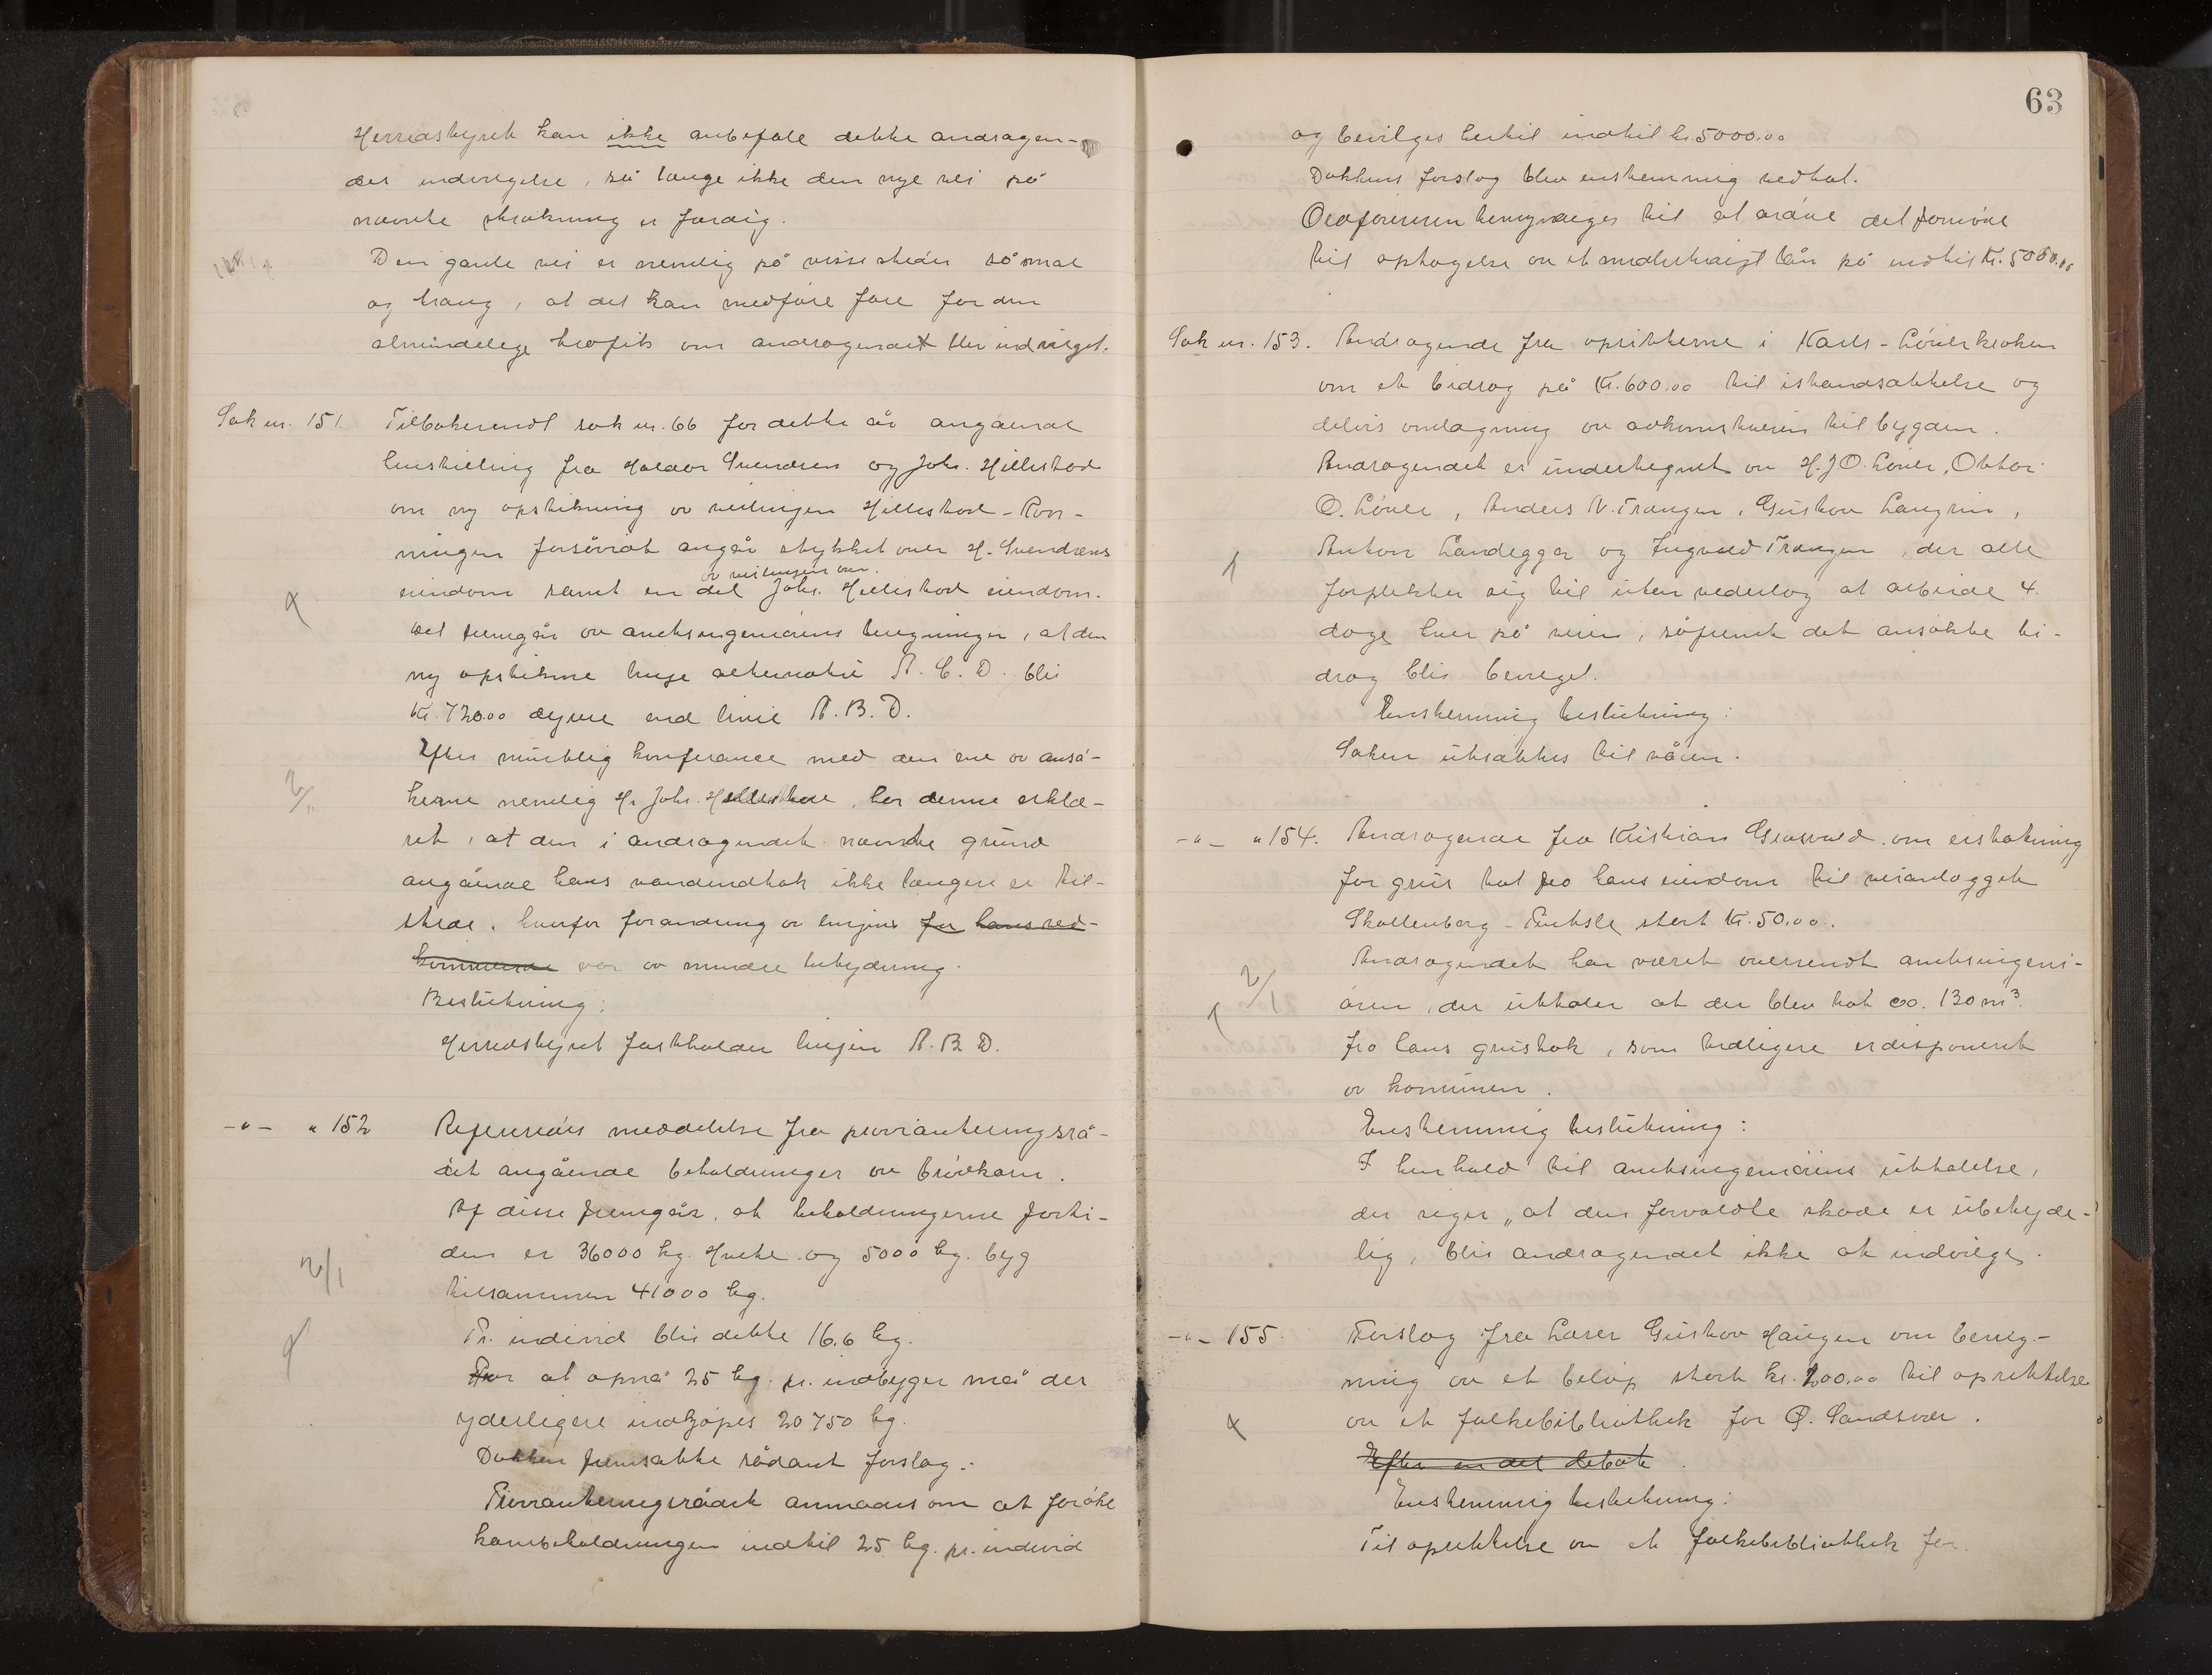 Herredstyret kan ikke anbefale dette andragen-
des indvilgelse, så længe ikke den nye vei på
nævnte strækning er færdig.
Den gamle vei er nemlig på visse steder så smal
og trang, at det kan medføre fare for den
almindelige trafik om andragendet blir indvilget.
Sak nr. 151. Tilbakesendt sak nr. 66 for dette år angående
henstilling fra Haldor Svendsen og Johs. Hillestad
om ny opstikning av veilinjen Hillestad - Røn-
ningen forsåvidt angår stykket over H. Svendsens
av veilinjen over
eiendom samt en del Johs. Hillestad eiendom.
Det fremgår av amtsingeniørens beregninger, at den
ny opstikne linje alternativ A. C. D. blir
Kr. 720.00 dyrere end linie A. B. D.
Efter muntlig konferance med den ene av ansø-
kerne nemlig Hr Johs. Hillestad, har denne erklæ-
ret, at den i andragendet nævnte grund
angående hans vandindtak ikke længere er til-
stede, hvorfor forandring av linjen for hans ved-
kommende var av mindre betydning.
Beslutning:
Herredstyret fastholder linjen A. B. D.
-"- " 152 Refereres meddelelse fra provianteringsrå-
det angående beholdninger av brødkorn.
Af disse fremgår, at beholdningerne forti-
den er 36000 kg. Hvete og 5000 kg. byg
tilsammen 41000 kg.
Pr. individ blir dette 16.6 kg.
For at opnå 25 kg. pr. indbygger må der
yderligere indkjøpes 20750 kg.
Dokken fremsatte sådant forslag:
Provianteringsrådet anmodes om at forøke
kornbeholdningen indtil 25 kg. pr. individ
63
og bevilges hertil indtil kr. 5000.00
Dokkens forslag blev enstemmig vedtat.
Ordføreren bemyndiges til at ordne det fornødne
til optagelse av et midlertidigt lån på indtil Kr. 5000.00
Sak nr. 153. Andragende fra opsitterne i Karls-Løverkroken
om et bidrag på Kr. 600.00 til istandsættelse og
delvis omlægning av adkomstveien til bygden.
Andragendet er undertegnet av H. J. O. Løver, Ottar
O. Løver, Anders N. Trangen, Gustav Langrin,
Anton Landegger og Ingvald Trangen, der alle
forplikter sig til uten vederlag at arbeide 4.
dage hver på veien, såfremt det ansøkte bi-
drag blir bevilget.
Enstemmig beslutning:
Saken utsættes til våren.
-"- " 154. Andragende fra Kristian Grosvald om erstatning
for grus tat fra hans eiendom til veianlægget
Skollenborg - Tuftsle stort Kr. 50.00.
Andragendet har været oversendt amtsingeni-
øren, der uttaler at der blev tat ca. 130 m³
fra hans grustak, som tidligere er disponeret
av kommunen.
Enstemmig beslutning:
I henhold til amtsingeniørens uttalelse,
der siger „at den forvoldte skade er ubetyde-"
lig, blir andragendet ikke at indvilge.
-"- 155. Forslag fra Lærer Gustav Haugen om bevilg-
ning av et beløp stort kr. 200.00 til oprettelse
av et folkebibliothek for Ø. Sandsvær.
Efter en del debate
Enstemmig beslutning:
Til oprettelse av et folkebibliothek for